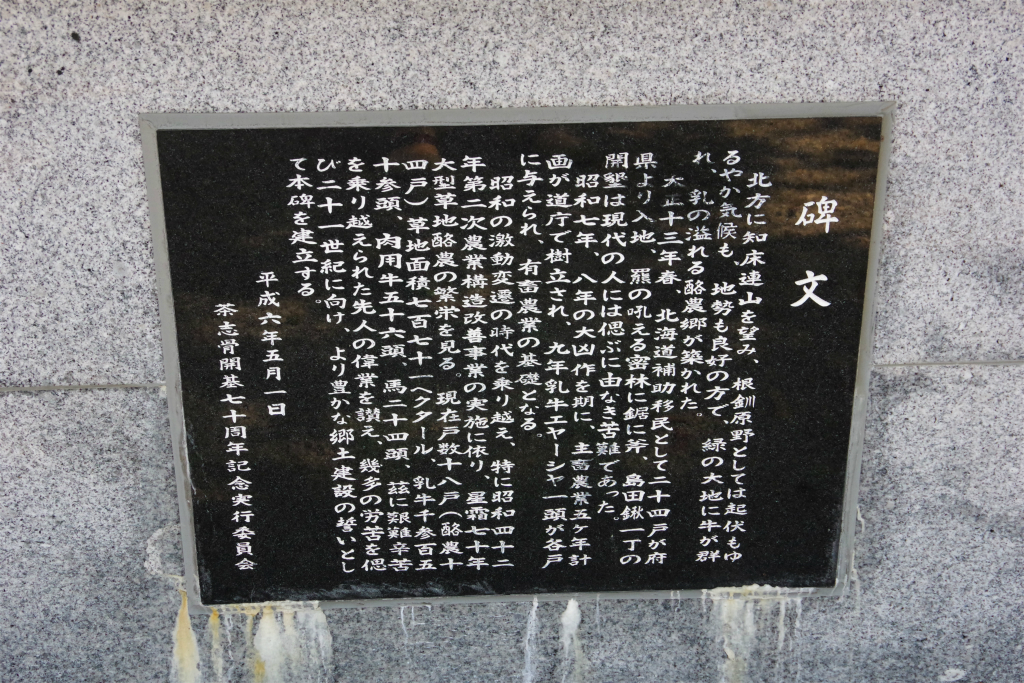 碑文
北方に知床連山を望み、根釧原野としては起伏もゆ
るやか気候も、地勢も良好の方で、緑の大地に牛が群
れ、乳の溢れる酪農郷が築かれた。
大正十三年春、北海道補助移民として二十四戸が府
県より入地、羆の吼える密林に鋸に斧、島田鍬一丁の
開墾は現代の人には偲ぶに由なき苦難であった。
昭和七年、八年の大凶作を期に、主畜農業五ヶ年計
画が道庁で樹立され、九年乳牛エヤーシャ一頭が各戸
に与えられ、有畜農業の基礎となる。
昭和の激動変遷の時代を乗り越え、特に昭和四十二
年第二次農業構造改善事業の実施に依り、星霜七十年
大型草地酪農の繁栄を見る。現在戸数十八戸(酪農十
四戸)草地面積七百七十一ヘクタール、乳牛千参百五
十参頭、肉用牛五十六頭、馬二十四頭、茲に艱難辛苦
を乗り越えられた先人の偉業を讃え、幾多の労苦を偲
び二十一世紀に向け、より豊かな郷土建設の誓いとし
て本碑を建立する。
平成六年五月一日
茶志骨開基七十周年記念実行委員会